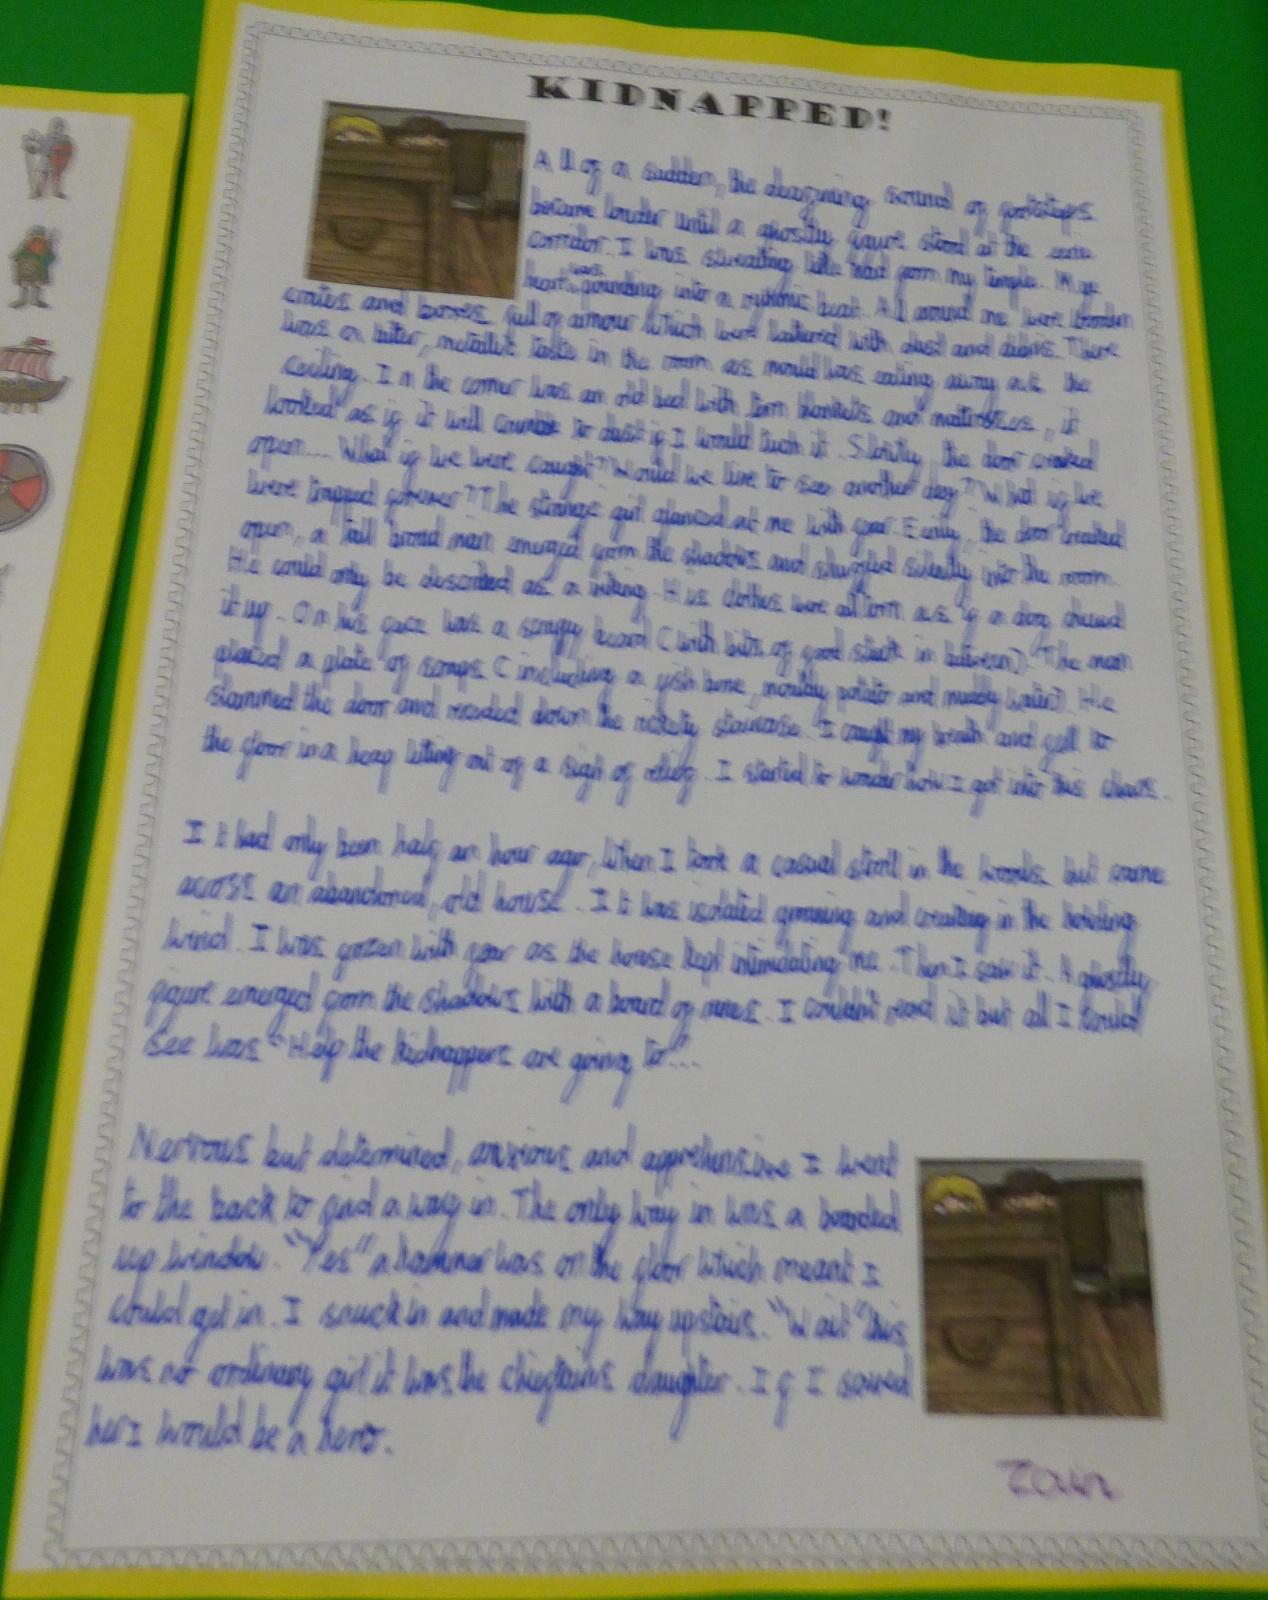 KIDNAPPED!
All of a sudden, the deafening sound of footsteps
became louder until a ghostly figure stood at the
corridor. I was sweating like had from my temple. My
heart was pounding into a rythmic beat. All around me were wooden
crates and boxes full of armour which were battered with dust and debris. There
was a bitter, metallic taste in the room as mould was eating away at the
ceiling. In the corner was an old bed with torn blankets and mattresses, it
looked as if it will crumble to dust if I would tuch it. Slowly, the door creaked
open.... What if we were caught? Would we live to see another day? What if we
were trapped forever? The strange girl glanced at me with fear. Eerily, the door creaked
open, a tall broad man emerged from the shadows and shuffled silently into the room.
He could only be described as a viking. His clothes were all torn as if a dog chewed
it up. On his face was a scrapy beard (with bits of food stuck in between). The man
placed a plate of scraps (including a fish bone, mouldy potato and muddy water). He
slammed the door and receded down the rickety staircase. I caught my breath and fell to
the floor in a heap letting out of a sigh of relief. I started to wonder how I got into this chaos.
It had only been half an hour ago, when I took a casual stroll in the woods but came
across an abandoned, old house. It was isolated groaning and creaking in the howling
wind. I was frozen with fear as the house kept intimidating me. Then I saw it. A ghostly
figure emerged from the shadows with a board of runes. I couldn't read it but all I could
see was "Help the kidnappers are going to"...
Nervous but determined, anxious and apprehensive I went
to the back to find a way in. The only way in was a boarded
up window. "Yes" a hammer was on the floor which meant I
could get in. I snuck in and made my way upstairs. "Wait" this
was no ordinary girl it was the chieftains daughter. If I saved
her I would be a hero.
Zain